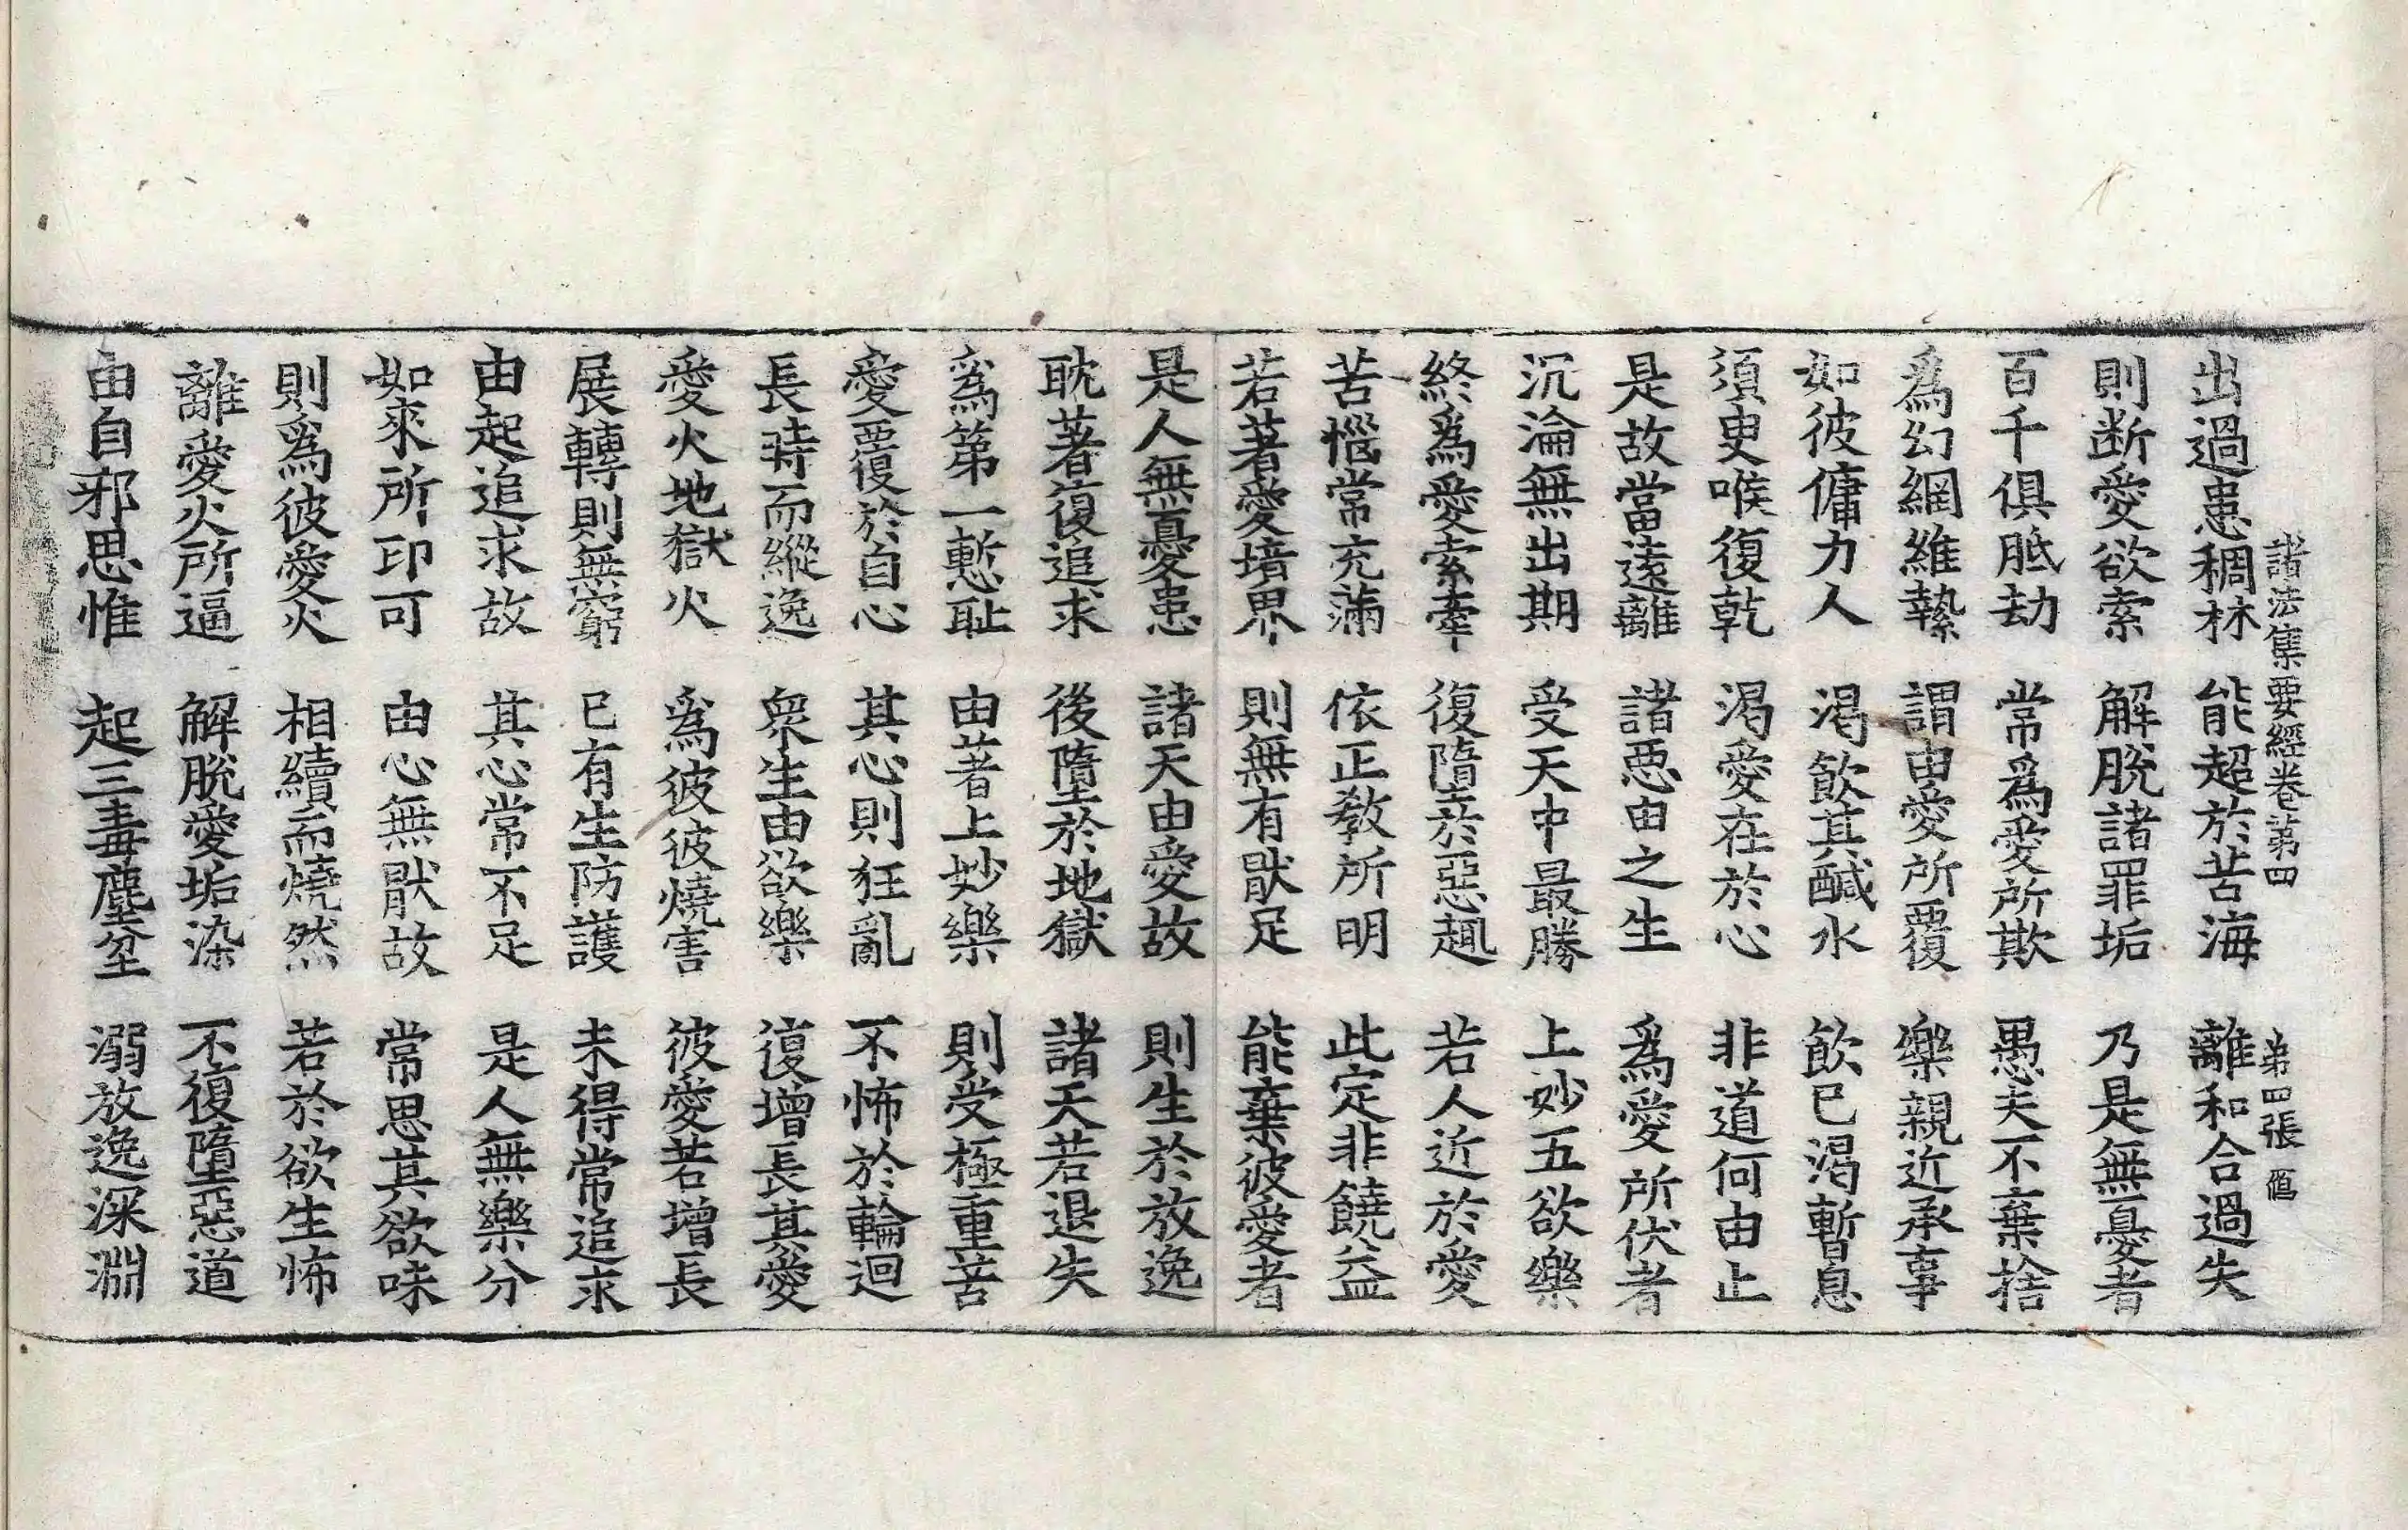 諸法集要經卷第四 第四張
出過患稠林 能超於苦海 離和合過失
則断愛欲索 解脫諸罪垢 乃是無憂者
百千俱胝劫 常爲愛所欺 愚夫不棄捨
爲幻網維縶 謂由愛所覆 樂親近承事
如彼傭力人 渴飲其醎水 飲已渴暫息
須臾喉復乾 渴愛在於心 非道何由止
是故當遠離 諸惡由之生 爲愛所伏者
沉淪無出期 受天中最勝 上妙五欲樂
終爲愛索牽 復墮於惡趣 若人近於愛
苦惱常充滿 依正教所明 此定非饒益
若著愛境界 則無有猒足 能棄彼愛者
是人無憂患 諸天由愛故 則生於放逸
耽著復追求 後墮於地獄 諸天若退失
爲第一慙耻 由著上妙樂 則受極重苦
愛覆於自心 其心則狂亂 不怖於輪迴
長時而縱逸 衆生由欲樂 復增長其愛
愛火地獄火 爲彼彼燒害 彼愛若增長
展轉則無窮 已有生防護 未得常追求
由起追求故 其心常不足 是人無樂分
如來所印可 由心無猒故 常思其欲味
則爲彼愛火 相續而燒然 若於欲生怖
離愛火所逼 解脫愛垢染 不復墮惡道
由自邪思惟 起三毒塵坌 溺放逸深淵